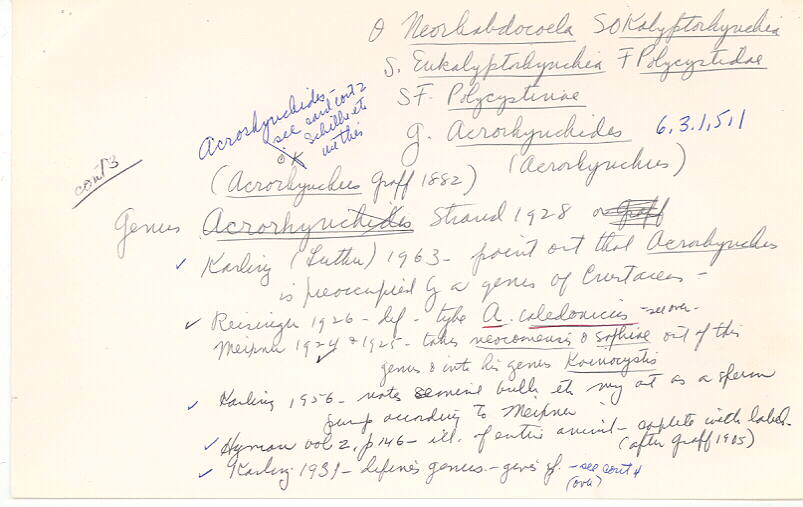 O Neorhabdocoela SO Kalyptorhynchia
S. Eukalyptorhynchia F Polycystidae
SF. Polycystinae
g. Acrorhynchides 6,3,1,5,1
(Acrorhynchus)
Acrorhynchides -
see card cont 2
Schilke etc
use this
OK
cont 3
(Acrorhynchus Graff 1882)
Genus Acrorhynchides Strand 1928 or Graff
✓ Karling (Luther) 1963 - point out that Acrorhynchus
is preoccupied by a genus of Crustacea -
✓ Reisinger 1926 - def - type A. caledonicus - see over -
Meixner 1924 & 1925 - takes neocomensis & sophiae out of this
genus & into his genus Koinocystis
✓ Karling 1956 - notes bulb etc may act as a sperm
pump according to Meixner
✓ Hyman vol 2, p 146 - ill. of entire animal - complete with label -
(after Graff 1905)
✓ Karling 1931 - defines genus - gives sp. - see cont 4
(over)